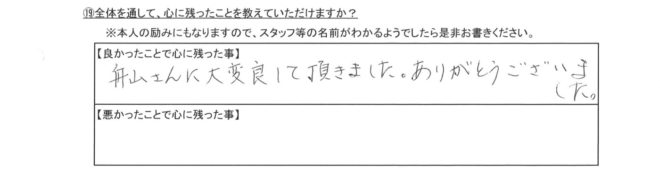 ⑲全体を通して、心に残ったことを教えていただけますか？
※本人の励みにもなりますので、スタッフ等の名前がわかるようでしたら是非お書きください。
【良かったことで心に残った事】
舟山さんに大変良して頂きました。ありがとうございま
した。
【悪かったことで心に残った事】